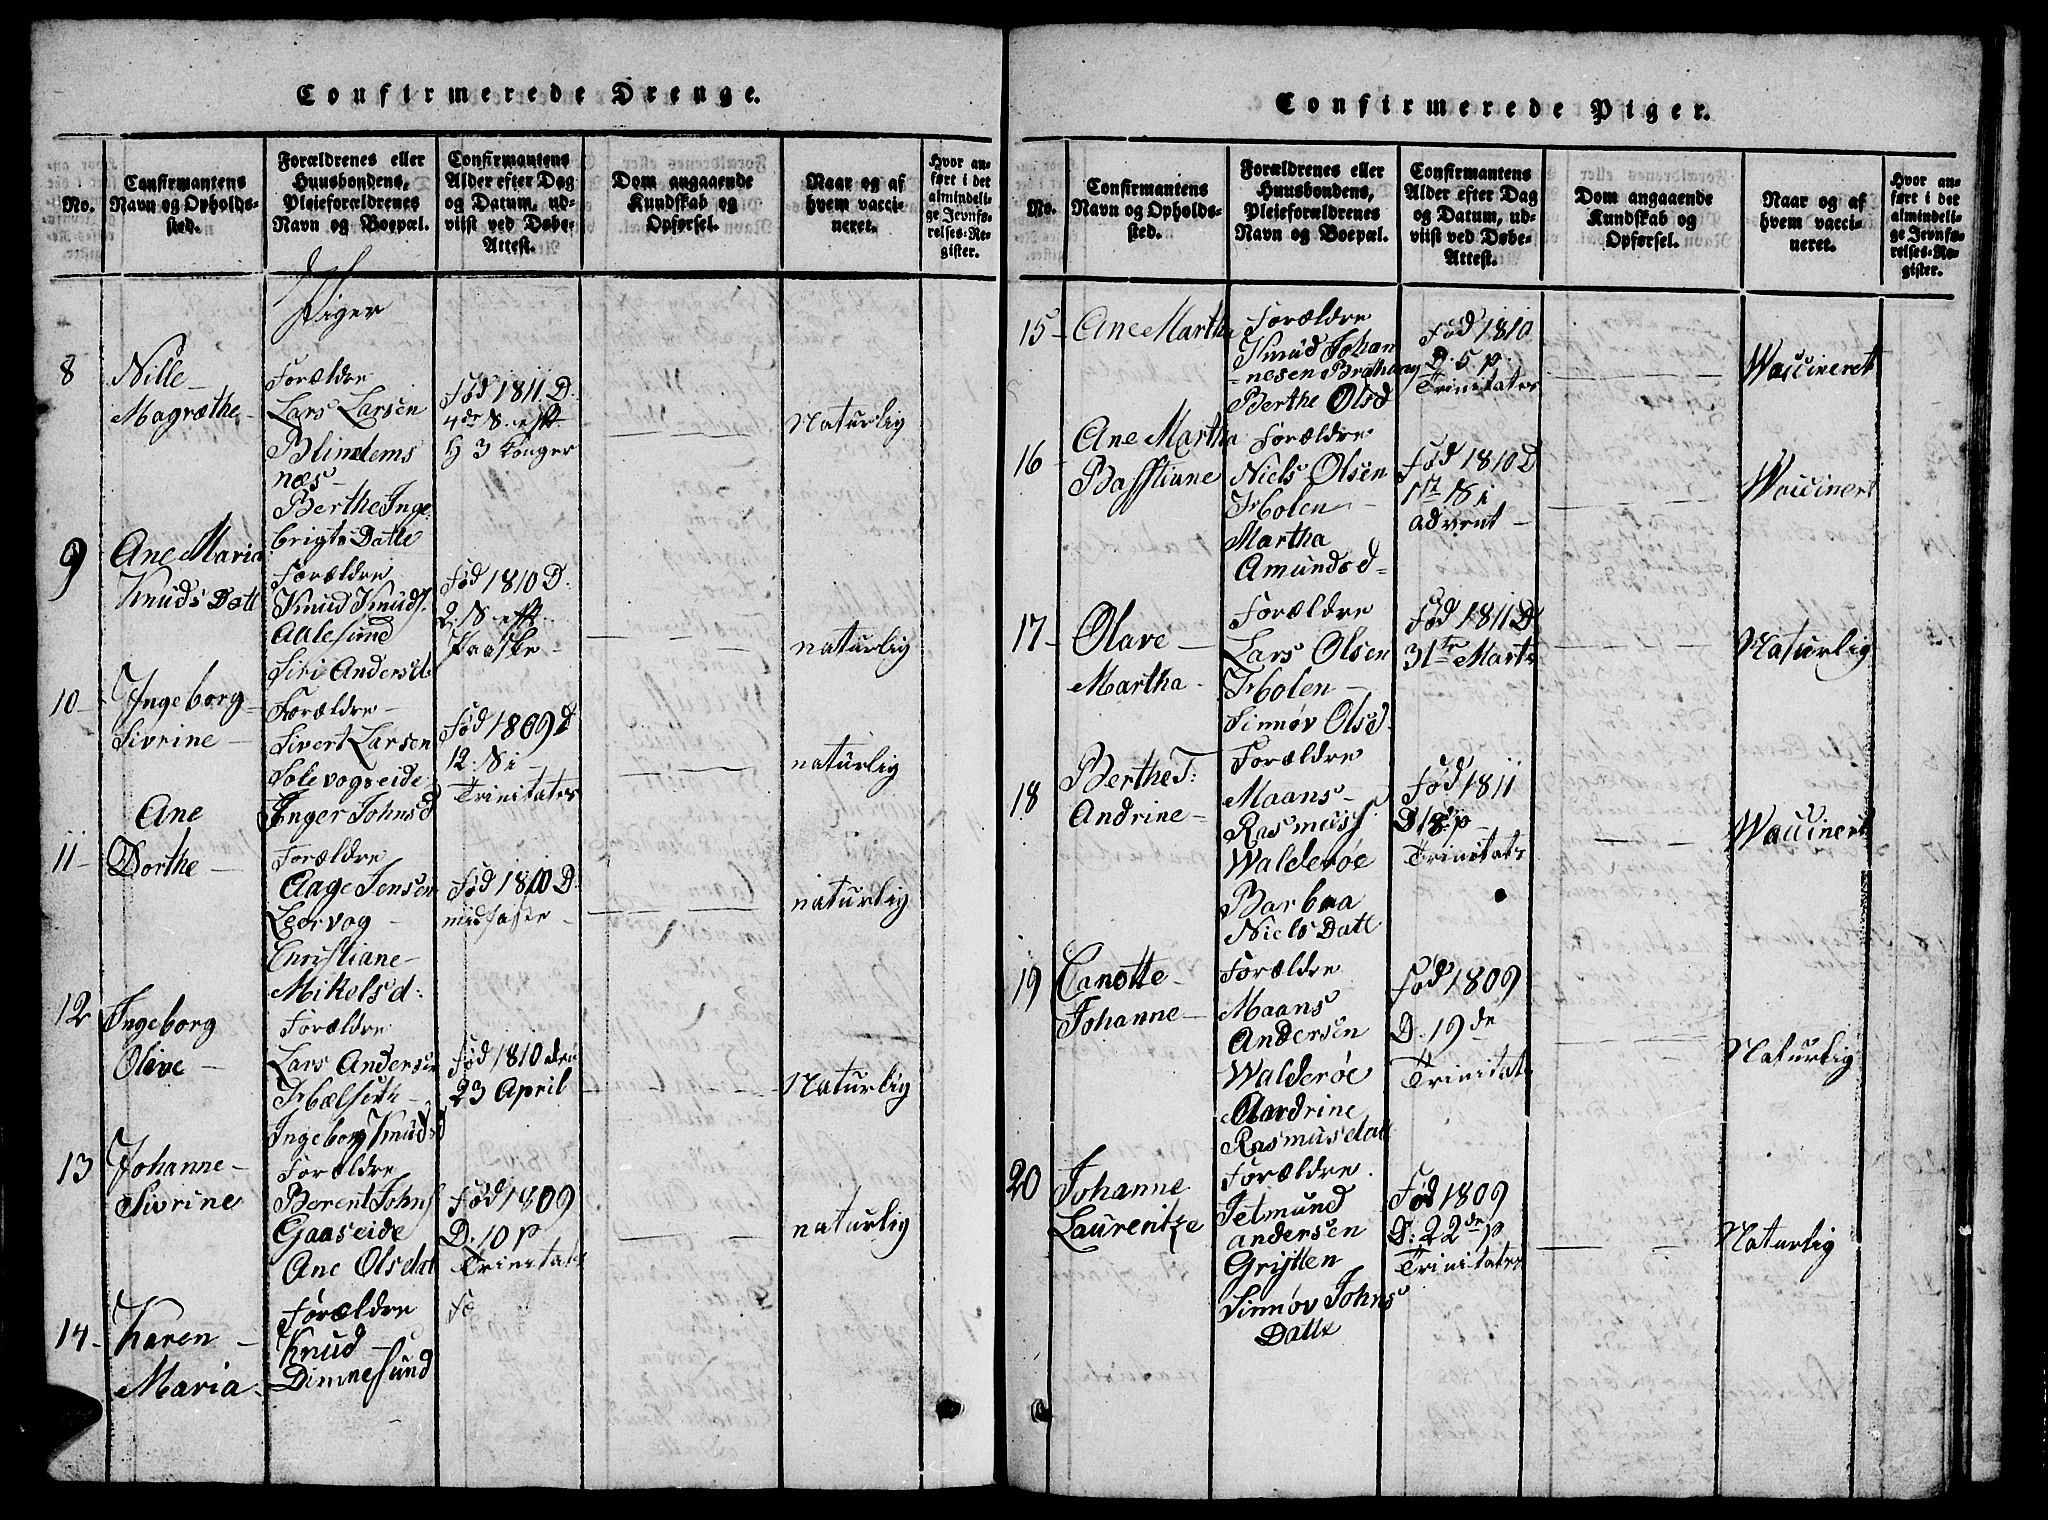 Confirmerede Drenge.
No.
Confirmantens
Navn og Opholds-
sted.
Forældrenes eller
Huusbondens,
Pleieforældrenes
Navn og Boepæl.
Confirmantens
Alder efter Dag
og Datum, ud-
viist ved Døbe-
Attest.
Dom angaaende
Kundskab og
Opførsel.
Naar og af
hvem vacci-
neret.
Hvor an-
ført i det
almindeli-
ge Jevnfø-
relses-Re-
gister.
Piger
8
Nille
Magrethe
Forældre
Lars Larsen
Blindems
næs
Berthe Inge
brigts Datte
Fød 1811 D.
4de S. eft
H 3 Konger
Naturlig
9
Ane Maria
Knuds Datt
Forældre
Knud Knuds.
Aalesund
Siri Andersd.
Fød 1810 D.
2. S. eft
Paaske
naturlig
10
Ingeborg
Sivrine
Forældre
Sivert Larsen
Solevogseide
Inger Johnsd
Fød 1809 D
12. S i
Trinitates
naturlig
11
Ane
Dorthe
Forældre
Aage Jensen
Leervog
Christiane
Mikelsd:
Fød 1810 D.
midfaste
naturlig
12
Ingeborg
Olive
Forældre
Lars Andersen
Ingeborg Knudsd
Fød 1810 den
23 April
Naturlig
13
Johanne
Sivrine
Forældre
Berent Johns
Gaaseide
Ane Olsdat
Fød 1809
D. 10 p
Trinitats
naturlig
14
Karen
Maria
Forældre
Knud
Dimnesund
Fø
Confirmerede Piger.
No.
Confirmantens
Navn og Opholds-
sted.
Forældrenes eller
Huusbondens,
Pleieforældrenes
Navn og Boepæl.
Confirmantens
Alder efter Dag
og Datum, ud-
viist ved Døbe-
Attest.
Dom angaaende
Kundskab og
Opførsel.
Naar og af
hvem vacci-
neret.
Hvor an-
ført i det
almindeli-
ge Jevnfø-
relses-Re-
gister.
15
Ane Martha
Forældre
Knud Johan
nesen
Berthe Olsd
Fød 1810
D. 5 p.
Trinitates
Waccineret
16
Ane Martha
Bastiane
Forældre
Niels Olsen
Holen
Martha
Amundsd
Fød 1810 D
1te S i
advent
Waccinert
17
Olave
Martha
Forældre
Lars Olsen
Holen
Sinnøv Olsd.
Fød 1811 D
31te Marts
Naturlig
18
Berthe T:
Andrine
Forældre
Maans
Rasmuss
Walderøe
Barbra
Niels Datt
Fød 1811
D 18de p
Trinitats
Waccinert
19
Canotte
Johanne
Forældre
Maans
Andersen
Walderøe
Rasmusdatt
Fød 1809
D. 19de
Trinitat
Naturlig
20
Johanne
Laurentze
Forældre
Jetmund
andersen
Grytten
Sinnøv Johns
Datte
Fød 1809
D: 22de p
Trinitates
Naturlig